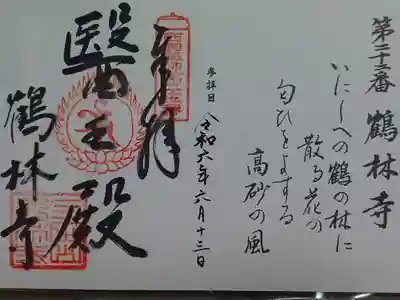 第二十二番 鶴林寺
いにしへの鶴の林に
散る花の
匂ひをよする
高砂の風
参拝日
令和六年六月十三日
奉拝
醫王殿
鶴林寺